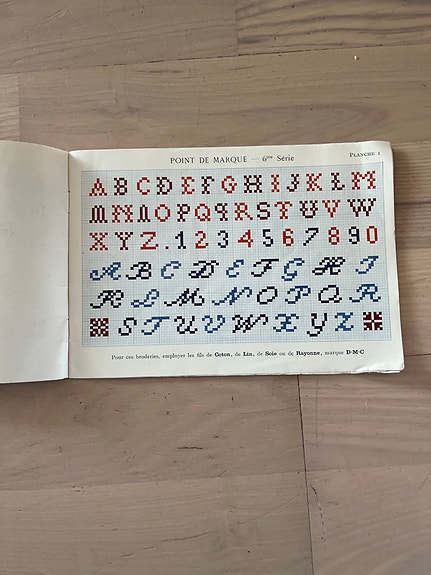 POINT DE MARQUE — 6me Série
PLANCHE I
A B C D E F G H I J K L M
M N N O P Q q R S T U V W
X Y Z . 1 2 3 4 5 6 7 8 9 0
A B C D E F G H I
K L M N O P Q R
S T U V W X Y Z
Pour ces broderies, employer les fils de Coton, de Lin, de Soie ou de Rayonne, marque D·M·C